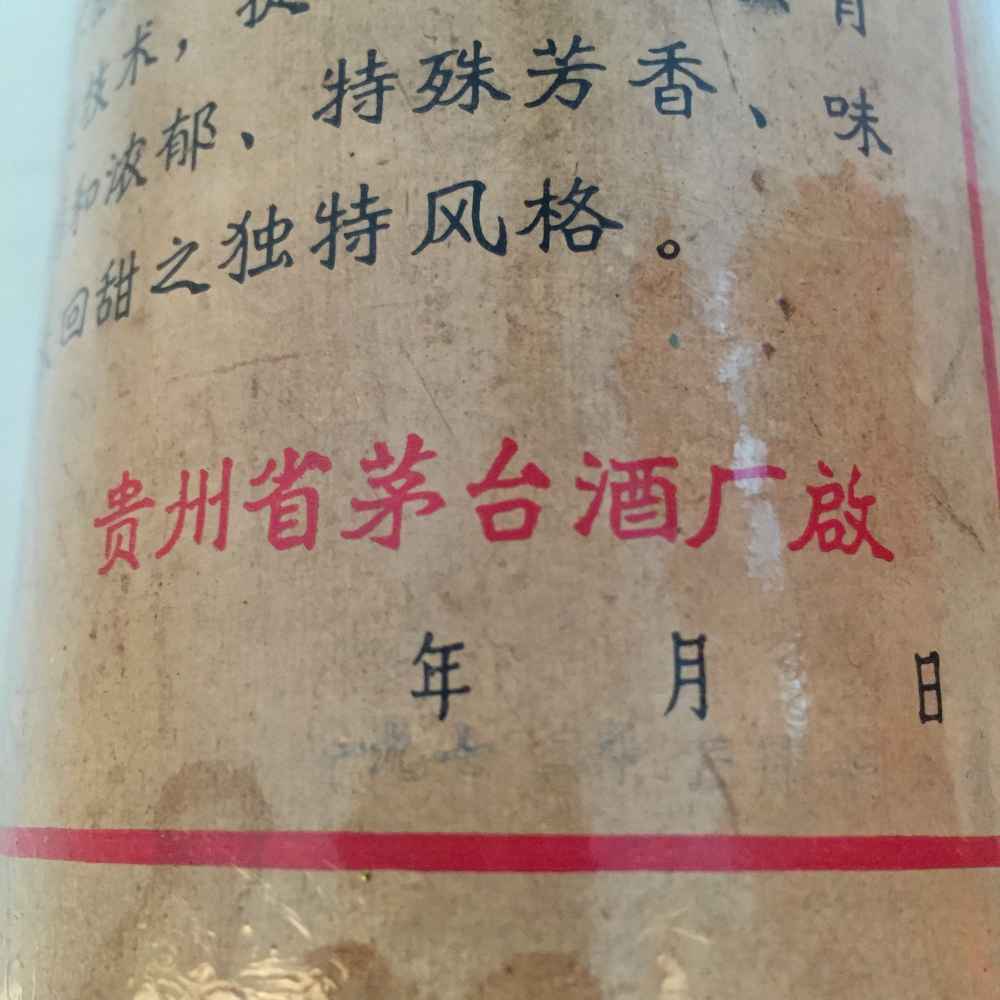 技术，
和浓郁、特殊芳香、味
回甜之独特风格。
贵州省茅台酒厂啟
年 月 日